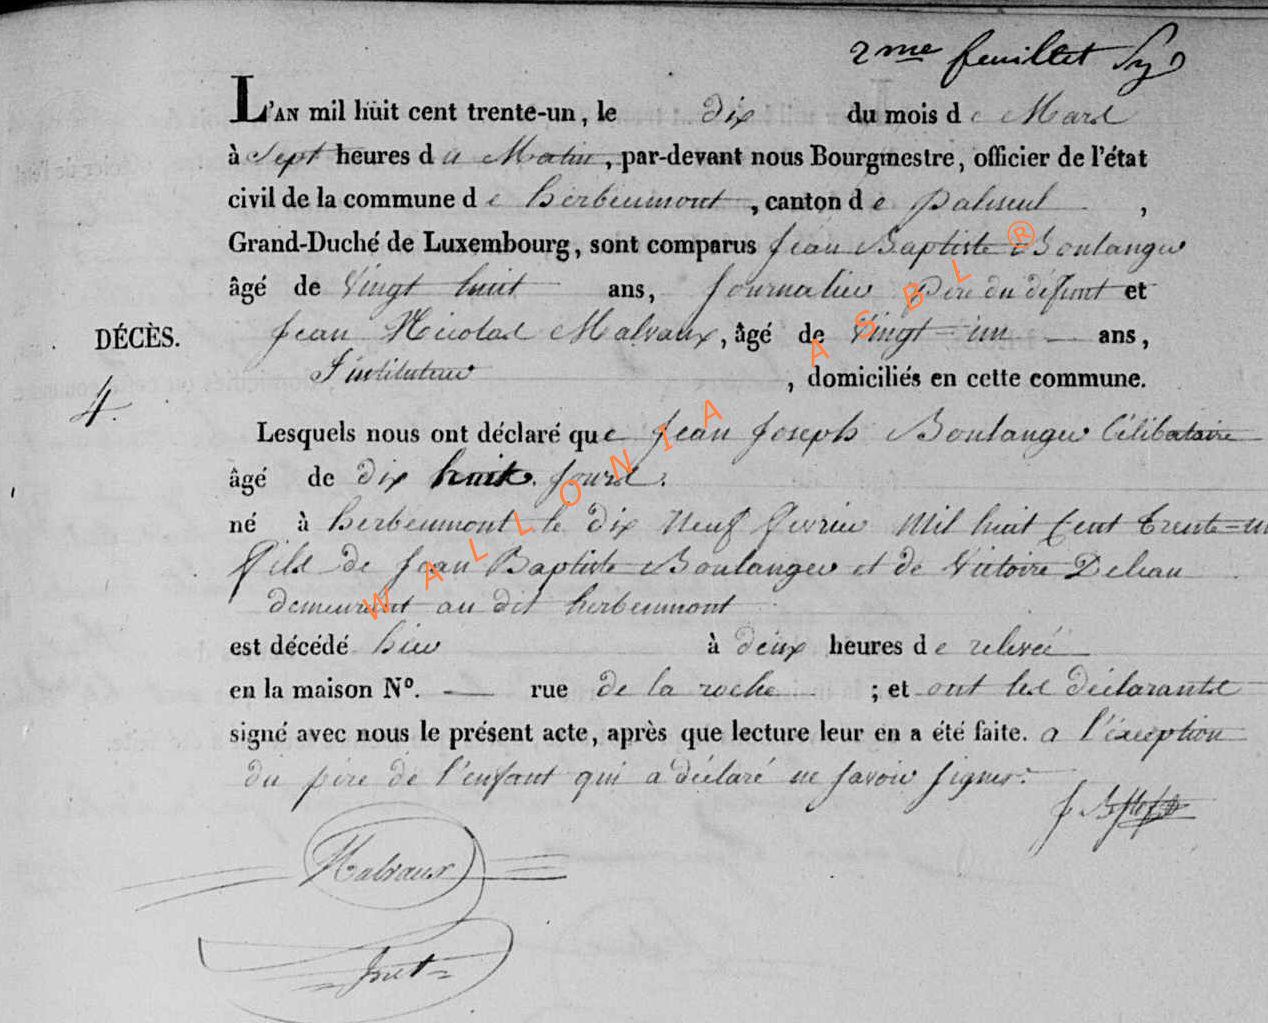 2me feuillet
L'AN mil huit cent trente-un, le dix du mois de Mars
à Sept heures du Matin, par-devant nous Bourgmestre, officier de l'état
civil de la commune de herbeumont, canton de paliseul,
Grand-Duché de Luxembourg, sont comparus Jean Baptiste Boulanger
âgé de Vingt huit ans, Journalier père du défunt et
DÉCÈS. Jean Nicolas Malvaux, âgé de Vingt un ans,
Instituteur, domiciliés en cette commune.
4.
Lesquels nous ont déclaré que Jean Joseph Boulanger Célibataire
âgé de dix huit Jours.
né à herbeumont le dix Neuf fevrier Mil huit Cent trente-un
fils de Jean Baptiste Boulanger et de Victoire
demeurant au dit herbeumont
est décédé hier à deux heures de relevée
en la maison N°. — rue de la roche ; et ont les déclarants
signé avec nous le présent acte, après que lecture leur en a été faite. a l'éxception
du père de l'enfant qui a déclaré ne savoir signer.
Malvaux
WALLONIA ASBL ®